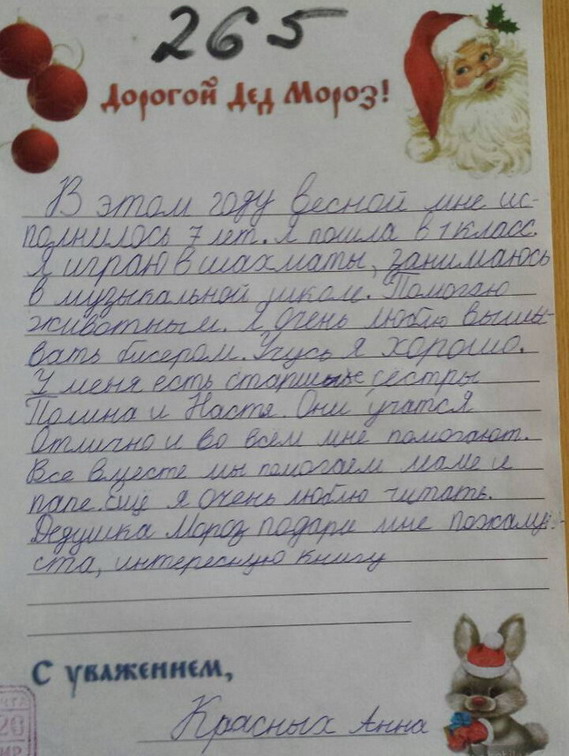 265
Дорогой Дед Мороз!
В этом году весной мне ис-
полнилось 7 лет. Я пошла в 1 класс.
Я играю в шахматы, занимаюсь
в музыкальной школе. Помогаю
животным. Я очень люблю выши-
вать бисером. Учусь я хорошо.
У меня есть старшые сёстры
Полина и Настя. Они учатся
отлично и во всем мне помогают.
Все вместе мы помогаем маме и
папе. Ещё я очень люблю читать.
Дедушка Мороз подари мне пожалуй-
ста, интересную книгу
С уважением,
Красных Анна
20